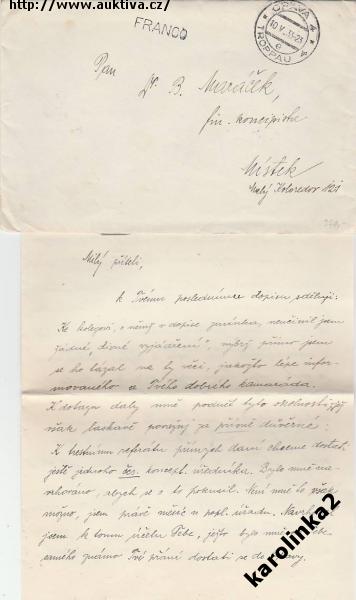 https://www.auktiva.cz/
FRANCO
OPAVA 4
10.V.33-23
e
* TROPPAU *
Pan
Dr. B. Maráček,
fin. koncipista
Místek
Malý Koloredov 121
Milý příteli,
k Tvému poslednímu dopisu sděluji:
Ke kolegovi, o němž v dopise zmínka, neučinil jsem
žádné „divné vyjádření", nýbrž přímo jsem
se ho tázal na ty věci, jakožto lépe infor-
movaného a Tvého dobrého kamaráda.
K dotazu daly mně podnět tyto okolnosti, jež
však laskavě považuj za přísně důvěrné:
K trestnímu referátu přímých daní chceme dostat
ještě jednoho čes. koncept. úředníka. Bylo mně na-
vrhováno, abych se o to pokusil. Není mně to však
možno, jsem právě měsíc u popl. úřadu.
jsem k tomu účelu Tebe, jejž to bylo mně
známo Tvé přání dostati se do
karolinka2